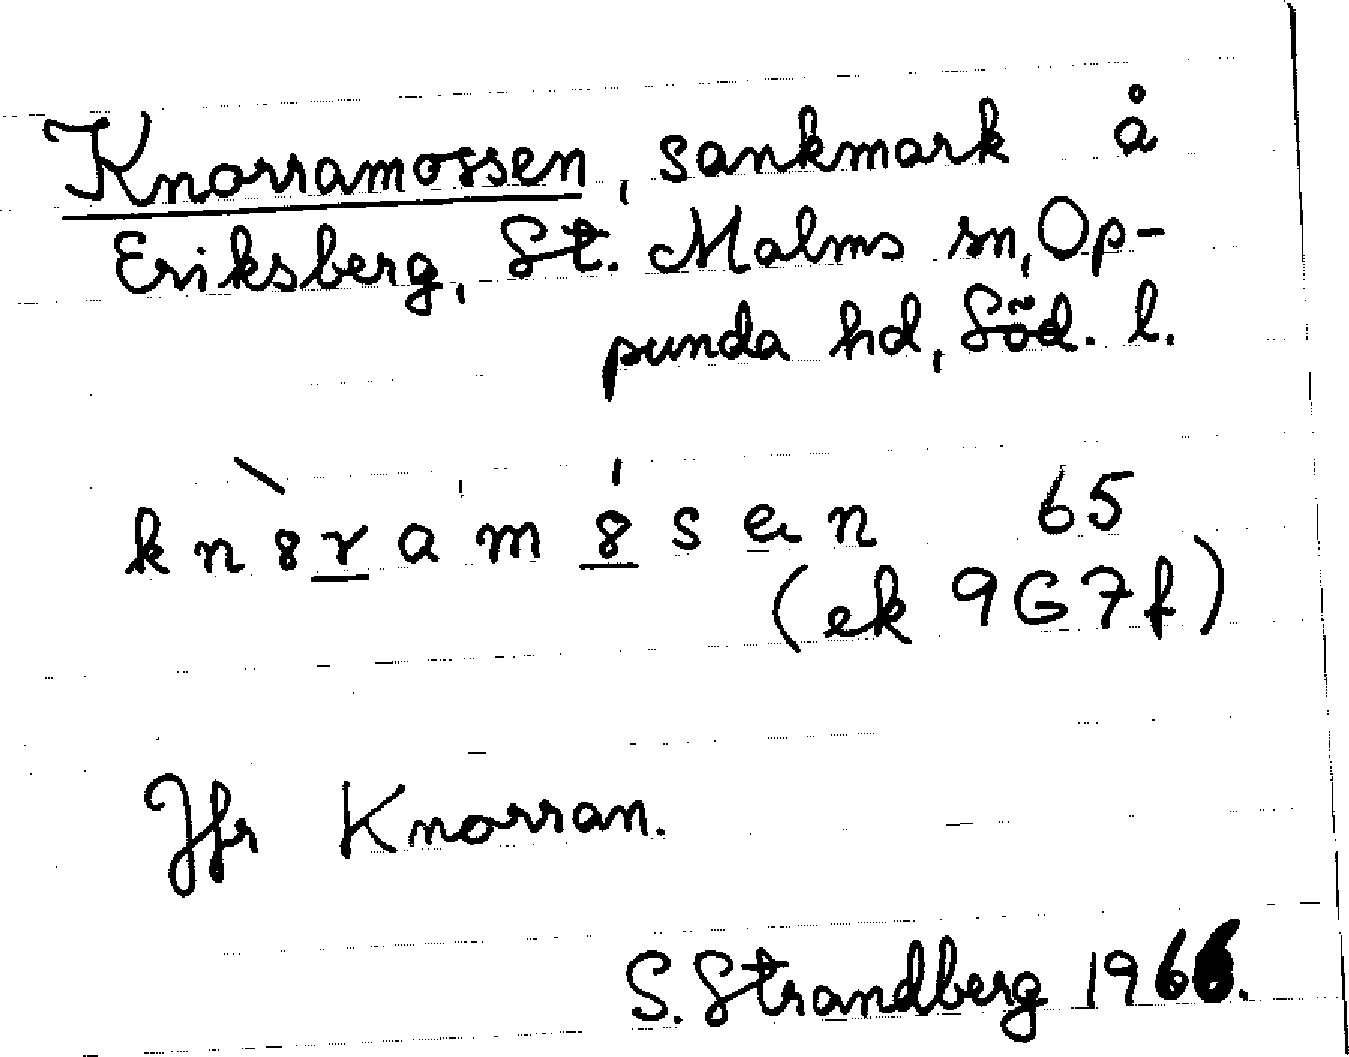 Knorramossen, sankmark å
Eriksberg, St. Malms sn, Op-
punda hd, Söd. l.
kn8̀ramȣ́sen 65
(ek 9G7f)
Jfr Knorran.
S. Strandberg 1966.